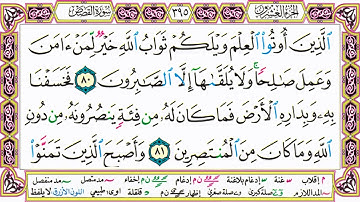 الجزء العشرون ٣٩٥ سورة القصص
ٱلَّذِينَ أُوتُوا۟ ٱلْعِلْمَ وَيْلَكُمْ ثَوَابُ ٱللَّهِ خَيْرٌ لِّمَنْ ءَامَنَ
وَعَمِلَ صَٰلِحًا وَلَا يُلَقَّىٰهَآ إِلَّا ٱلصَّٰبِرُونَ ٨٠ فَخَسَفْنَا
بِهِۦ وَبِدَارِهِ ٱلْأَرْضَ فَمَا كَانَ لَهُۥ مِن فِئَةٍ يَنصُرُونَهُۥ مِن دُونِ
ٱللَّهِ وَمَا كَانَ مِنَ ٱلْمُنتَصِرِينَ ٨١ وَأَصْبَحَ ٱلَّذِينَ تَمَنَّوْا۟